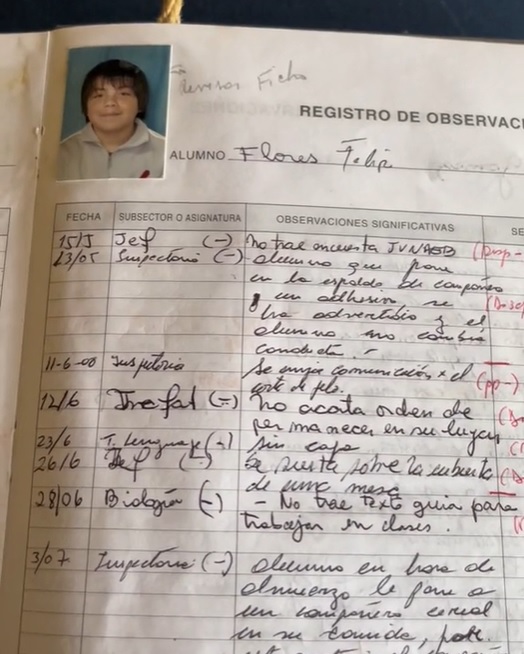 Ficha
REGISTRO DE OBSERVACI
ALUMNO Flores Felip
FECHA SUBSECTOR O ASIGNATURA OBSERVACIONES SIGNIFICATIVAS SE
15/5 Jef (-) No trae encuesta JUNAEB (Resp-
13/05 Inspectoria (-) alumno que pone
en la espalda de compañero
un adhesivo se
ha advertido y el
alumno no cambia
conducta.-
11-6-08 Inspectoria Se envía comunicación x el (pp-)
corte de pelo.
12/6 (-) No acata orden de
permanecer en su lugar
23/6 T. Lenguaje (-) Sin
26/6 Jef (-) Se sobre la cubierta
de una mesa
28/06 Biología (-) - No trae texto guía para
trabajar en clases.
3/07 Inspectoria (-) alumno en hora de
almuerzo le pone a
un compañero cereal
en su comida,